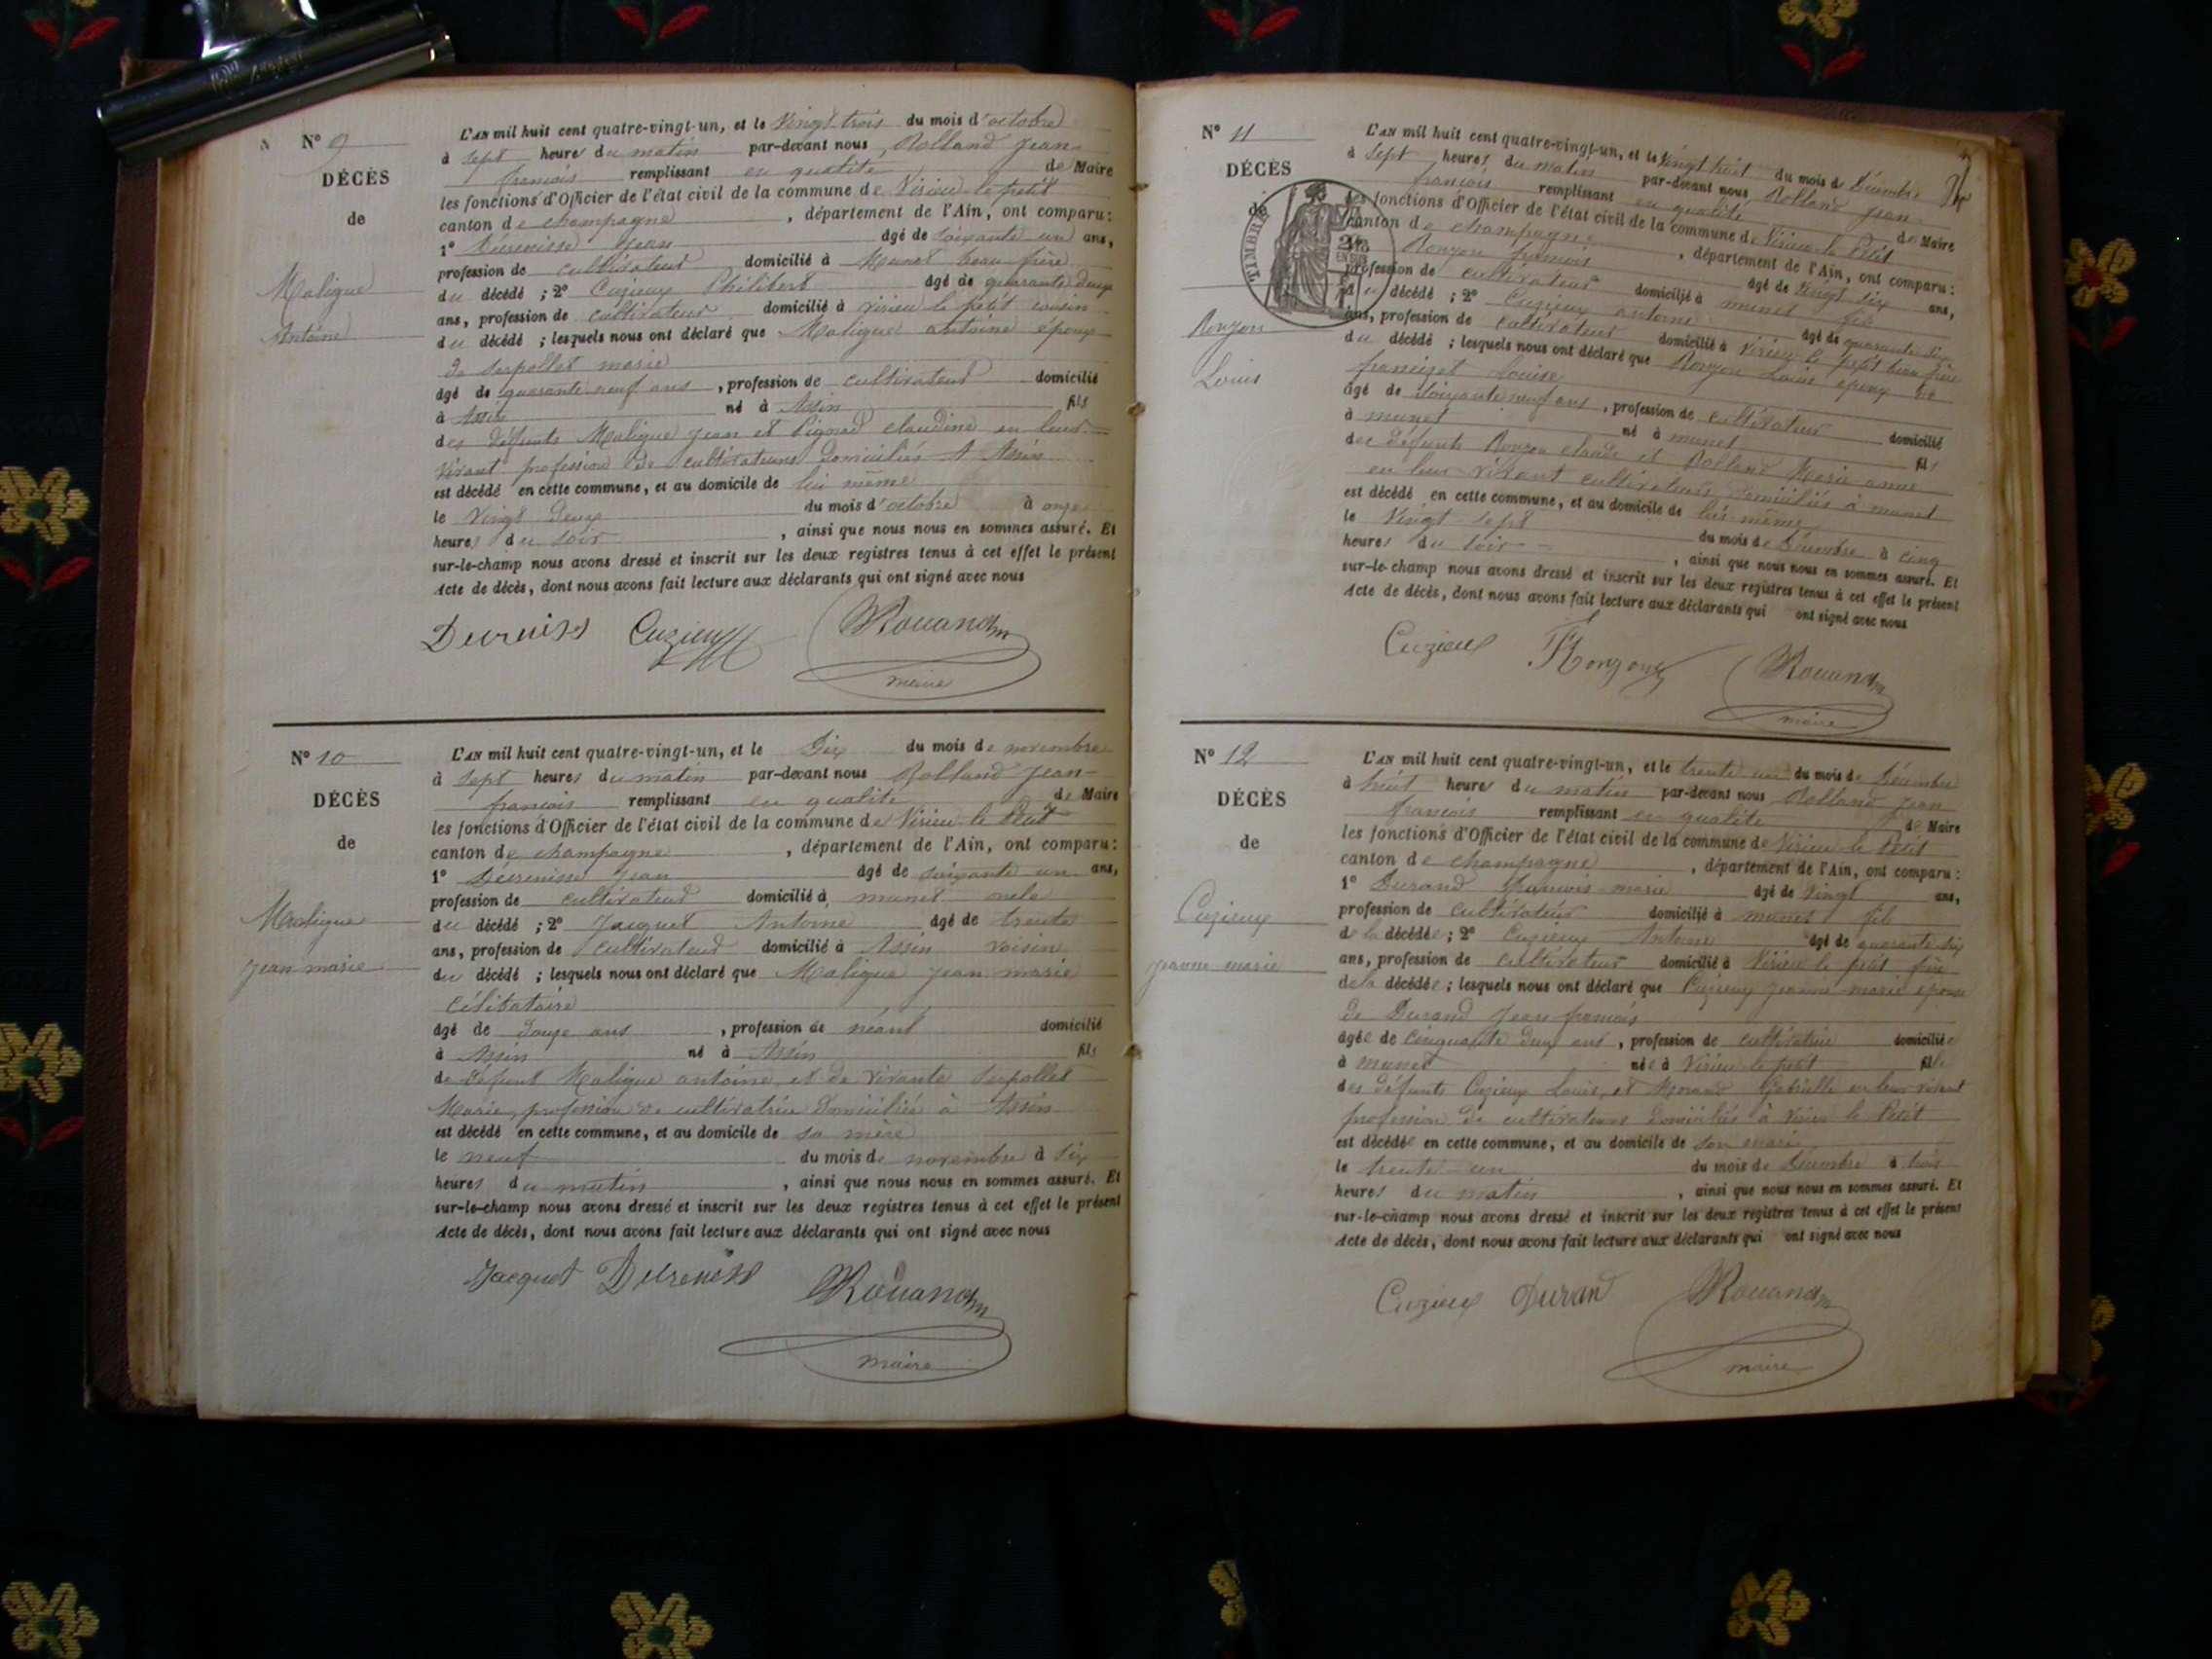 N° 9
DÉCÈS
de
Maligue
Antoine
L'AN mil huit cent quatre-vingt-un, et le Vingt trois du mois d'octobre
à sept heures du matin par-devant nous Rolland Jean
françois remplissant en qualité de Maire
les fonctions d'Officier de l'état civil de la commune de Virieu le petit
canton de champagne , département de l'Ain, ont comparu:
1° Jean âgé de soixante un ans,
profession de cultivateur domicilié à Munet beau frère
du décédé ; 2° Cuzieux Philibert âgé de quarante deux
ans, profession de cultivateur domicilié à virieu le petit cousin
du décédé ; lesquels nous ont déclaré que Maligue antoine époux
de Serpollet marie
âgé de quarante neuf ans , profession de cultivateur domicilié
à Assin né à Assin fils
des défunts Maligue Jean et Pigond claudine en leur
vivant profession de cultivateurs domiciliés à Assin
est décédé en cette commune, et au domicile de lui même
le Vingt Deux du mois d'octobre à onze
heures du soir , ainsi que nous nous en sommes assuré. Et
sur-le-champ nous avons dressé et inscrit sur les deux registres tenus à cet effet le présent
Acte de décès, dont nous avons fait lecture aux déclarants qui ont signé avec nous
Cuzieux
maire
N° 10
DÉCÈS
de
Maligue
Jean marie
L'AN mil huit cent quatre-vingt-un, et le Dix du mois de novembre
à sept heures du matin par-devant nous Rolland Jean
françois remplissant en qualité de Maire
les fonctions d'Officier de l'état civil de la commune de Virieu le Petit
canton de champagne , département de l'Ain, ont comparu:
1° Jean âgé de soixante un ans,
profession de cultivateur domicilié à munet oncle
du décédé ; 2° Jacquet Antoine âgé de trente
ans, profession de cultivateur domicilié à Assin voisin
du décédé ; lesquels nous ont déclaré que Maligue Jean marie
célibataire
âgé de douze ans , profession de néant domicilié
à Assin né à Assin fils
de défunt Maligue antoine et de vivante Serpollet
Marie profession de cultivatrice domiciliée à Assin
est décédé en cette commune, et au domicile de sa mère
le neuf du mois de novembre à six
heures du matin , ainsi que nous nous en sommes assuré. Et
sur-le-champ nous avons dressé et inscrit sur les deux registres tenus à cet effet le présent
Acte de décès, dont nous avons fait lecture aux déclarants qui ont signé avec nous
Jacquet
maire
N° 11
DÉCÈS
de
TIMBRE
Ronzon
Louis
L'AN mil huit cent quatre-vingt-un, et le Vingt huit du mois de Décembre
à Sept heures du matin par-devant nous Rolland Jean
françois remplissant en qualité de Maire
les fonctions d'Officier de l'état civil de la commune de Virieu le Petit
canton de champagne , département de l'Ain, ont comparu:
Ronzon âgé de Vingt six ans,
profession de cultivateur domicilié à munet fils
du décédé ; 2° Cuzieux antoine âgé de quarante six
ans, profession de cultivateur domicilié à Virieu le petit beau frère
du décédé ; lesquels nous ont déclaré que Ronzon Louis époux de
Louise
âgé de soixante neuf ans , profession de cultivateur domicilié
à munet né à munet fils
des défunts Ronzon claude et Rolland Marie anne
en leur vivant cultivateurs domiciliés à munet
est décédé en cette commune, et au domicile de lui-même
le Vingt-sept du mois de Décembre à cinq
heures du soir , ainsi que nous nous en sommes assuré. Et
sur-le-champ nous avons dressé et inscrit sur les deux registres tenus à cet effet le présent
Acte de décès, dont nous avons fait lecture aux déclarants qui ont signé avec nous
Cuzieux Ronzon
maire
N° 12
DÉCÈS
de
Cuzieux
jeanne marie
L'AN mil huit cent quatre-vingt-un, et le trente un du mois de Décembre
à huit heures du matin par-devant nous Rolland Jean
françois remplissant en qualité de Maire
les fonctions d'Officier de l'état civil de la commune de Virieu le Petit
canton de champagne , département de l'Ain, ont comparu:
1° Durand françois marie âgé de Vingt ans,
profession de cultivateur domicilié à munet fils
de la décédée ; 2° Cuzieux Antoine âgé de quarante six
ans, profession de cultivateur domicilié à Virieu le petit frère
de la décédée ; lesquels nous ont déclaré que Cuzieux jeanne marie épouse
de Durand Jean françois
âgée de cinquante deux ans , profession de cultivatrice domiciliée
à munet née à Virieu le petit fille
des défunts Cuzieux Louis, et Morand Gabrielle en leur vivant
profession de cultivateurs domiciliés à Virieu le Petit
est décédée en cette commune, et au domicile de son mari
le trente un du mois de Décembre à trois
heures du matin , ainsi que nous nous en sommes assuré. Et
sur-le-champ nous avons dressé et inscrit sur les deux registres tenus à cet effet le présent
Acte de décès, dont nous avons fait lecture aux déclarants qui ont signé avec nous
Cuzieux Durand
maire